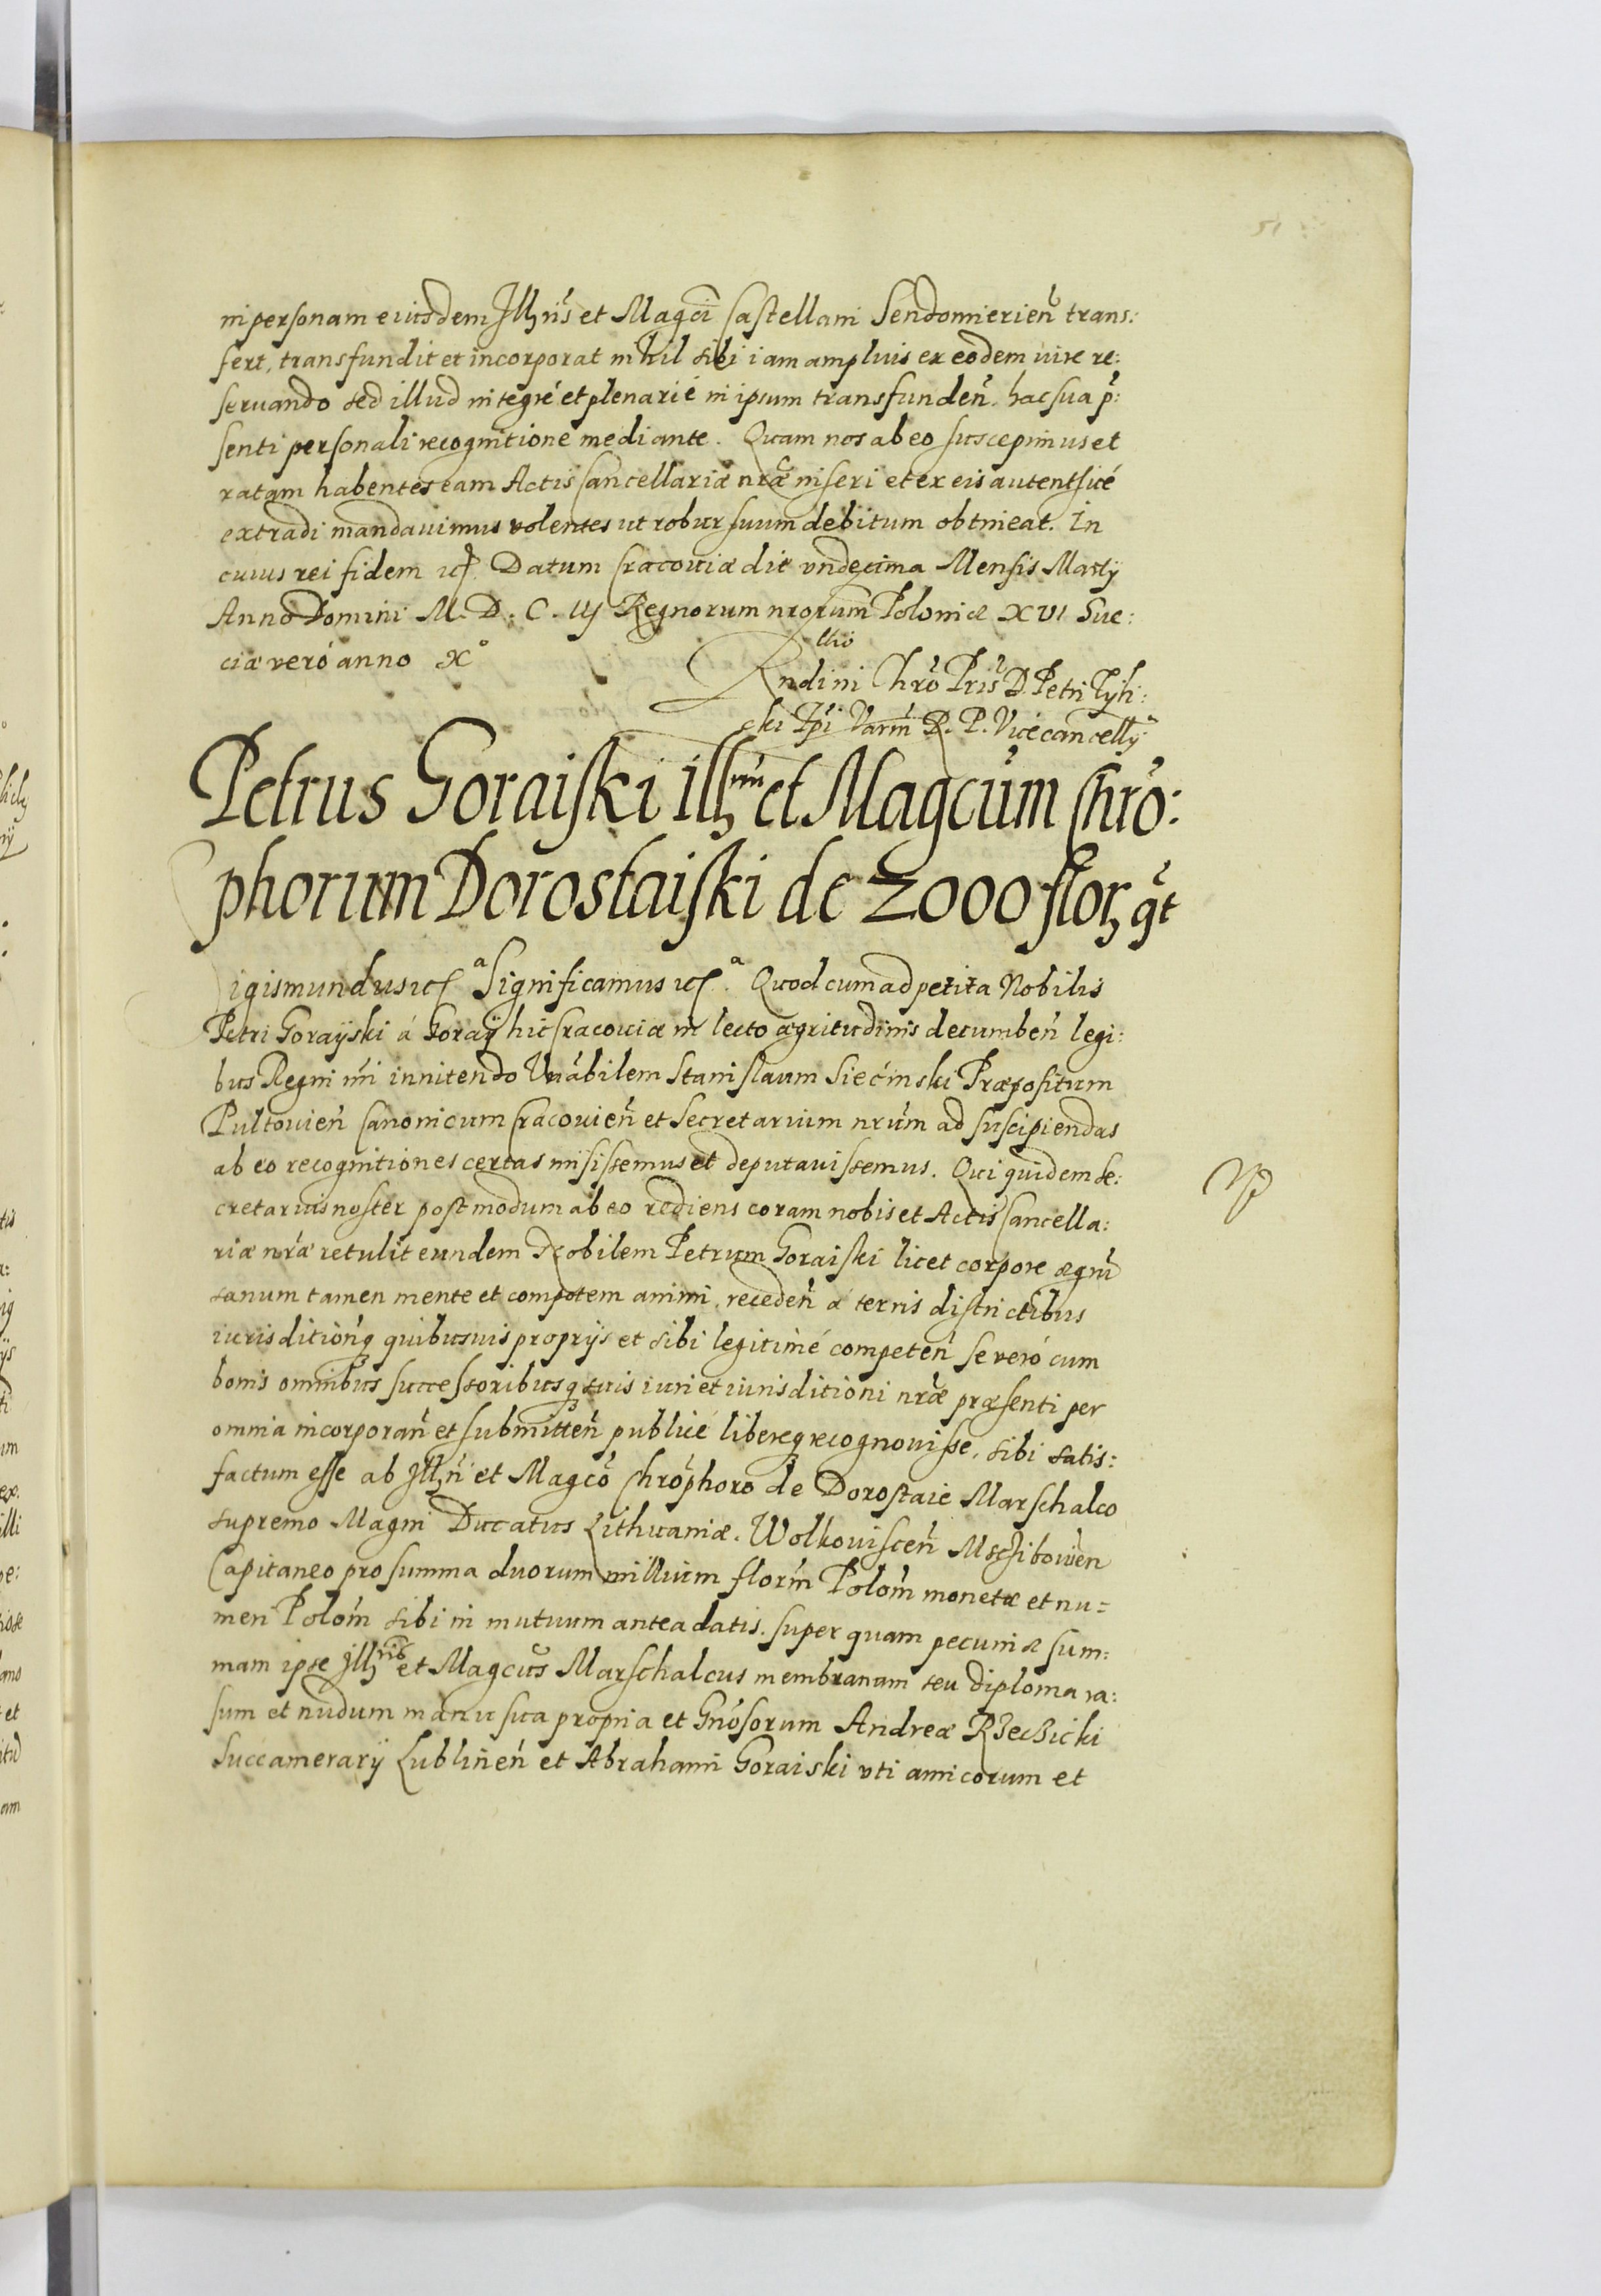 51
in personam eiusdem Illris et Magci Castellani Sendomirien̄ trans:
fert, transfundit et incorporat nihil sibi iam amplius ex eodem iure re:
seruando sed illud integré et plenarié in ipsum transfunden̄. hac sua p̄:
senti personali recognitione mediante. Quam nos ab eo suscepimus et
ratam habentes eam Actis Cancellariæ nrǣ inseri et ex eis autenticé
extradi mandauimus volentes ut robur suum debitum obtineat. In
cuius rei fidem etc. Datum Cracouiæ die vndecima Mensis Martÿ
Anno Domini M. D. C. IIJ Regnorum nrorum Poloniæ XVI Sue:
ciæ veró anno X°
Rndi in Chrō Pris D. Petri Tyli:
cki Epi Varm R. P. Vicecancellÿ
Petrus Goraiski Illrm et Magcūm Chrō:
phorum Dorostaiski de 2000 flor qt
igismundus etc a Significamus etc a. Quod cum ad petita Nobilis
Petri Goraÿski á Goraÿ hic Cracouiæ in lecto ægritudinis decumben̄ legi:
bus Regni nri innitendo Vnābilem Stanislaum Siećinski Præpositum
Pultouien̄ Canonicum Cracouien̄ et Secretarium nrūm ad suscipiendas
ab eo recognitiones certas misissemus et deputauissemus. Qui quidem se:
cretarius noster postmodum ab eo rediens coram nobis et Actis Cancella:
riæ nrǣ retulit eundem Nobilem Petrum Goraiski licet corpore ægrū
sanum tamen mente et compotem animi, receden̄ á terris districtibus
iurisdition̄q quibusuis proprÿs et sibi legitimé competen̄ se veró cum
bonis omnibus successoribusq suis iuri et iurisditioni nrǣ præsenti per
omnia incorporan̄ et submitten̄ publicé libereq recognouisse, sibi satis:
factum esse ab Illri et Magcō Chrōphoro de Dorostaie Marschalco
supremo Magni Ducatus Lithuaniæ. Wolkouiscen̄ Mscibowien
Capitaneo pro summa duorum millium florīn Polon̄ monetæ et nu=
men Polon̄ sibi in mutuum antea datis. super quam pecuniæ sum:
mam ipse Illris et Magcūs Marschalcus membranam seu diploma ra:
sum et nudum manu sua propria et Gnōsorum Andreæ Rzeczicki
Succamerarÿ Lublinen̄ et Abrahami Goraiski vti amicorum et